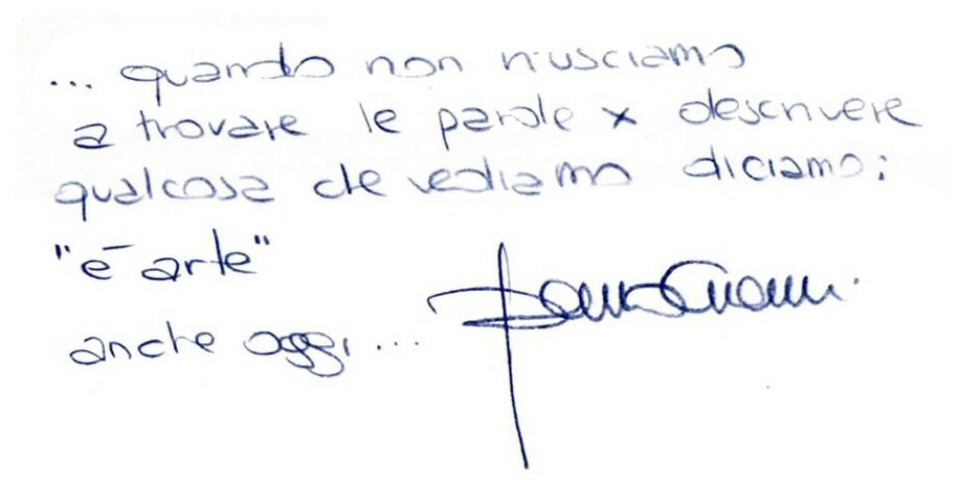 ... quando non riusciamo
a trovare le parole x descrivere
qualcosa che vediamo diciamo:
"è arte"
anche oggi...